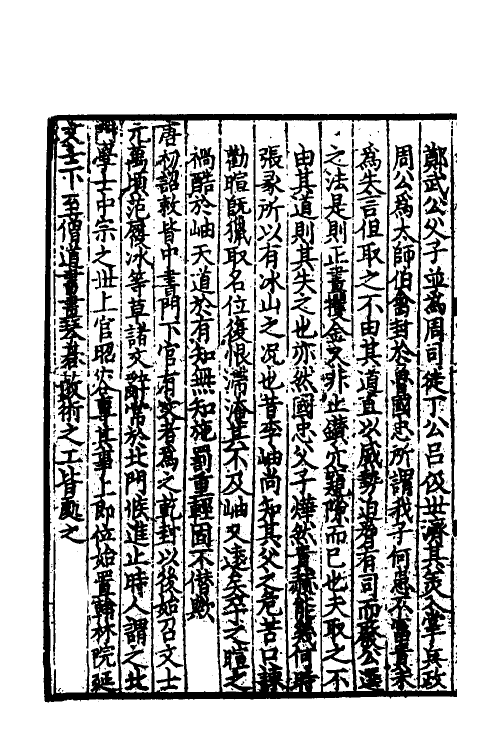 鄭武公父子並為周司徒丁公呂伋世濟其美入掌兵政
周公為太師伯禽封於魯國忠所謂我子何患不富貴未
為失言但取之不由其道直以威勢迫脅有司而廢公選
之法是則正晝攫金又非止鑽穴窺隙而已也夫取之不
由其道則其失之也亦然國忠父子燁然貴赫能幾何時
張彖所以有冰山之况也昔李岫尚知其父之危苦口諫
勸暄既獵取名位復恨滯淹其不及岫又遠矣卒之暄之
禍酷於岫天道於有知無知施罰重輕固不僭歟
唐初詔敕皆中書門下官有文者為之乾封以後始召文士
元萬頃范履冰等草諸文辭常於北門候進止時人謂之北
門學士中宗之世上官昭容專其事上即位始置翰林院延
文士下至僧道書畫琴棊數術之工皆處之